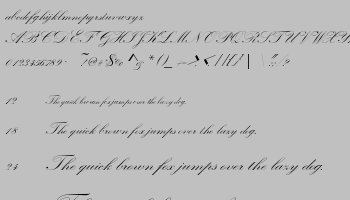 abcdefghijklmnopqrstuvwxyz
ABCDEFGHIJKLMNOPQRSTUVWXYZ
0123456789
12 The quick brown fox jumps over the lazy dog.
18 The quick brown fox jumps over the lazy dog.
24 The quick brown fox jumps over the lazy dog.